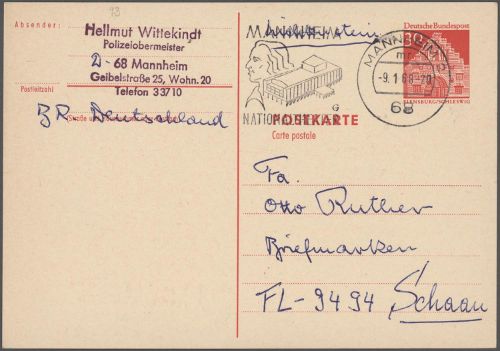 93
Absender:
Hellmut Wittekindt
Polizeiobermeister
D-68 Mannheim
Geibelstraße 25, Wohn. 20
Telefon 33710
Postleitzahl
BR Deutschland
MANNHEIM
Liechtenstein
G
NATIONALTHEATER
MANNHEIM
-9.1.68-20
68
Deutsche Bundespost
30
FLENSBURG/SCHLESWIG
POSTKARTE
Carte postale
Fa.
Otto Ruthier
Briefmarken
FL-9494 Schaan